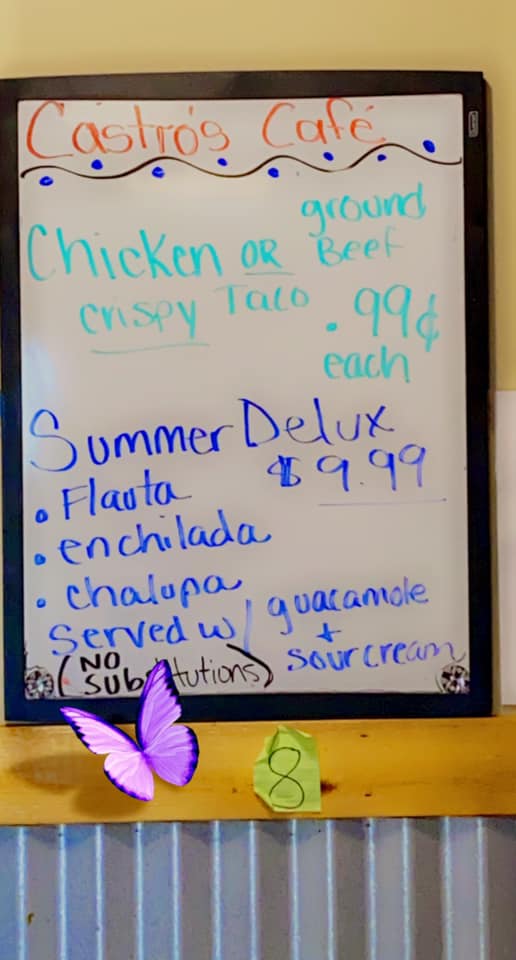 Castro's Café
ground
Chicken OR Beef
crispy Taco .99¢
each
Summer Delux
• Flauta $9.99
• enchilada
• chalupa
Served w/ guacamole
+
(NO sour cream
Substitutions)
8